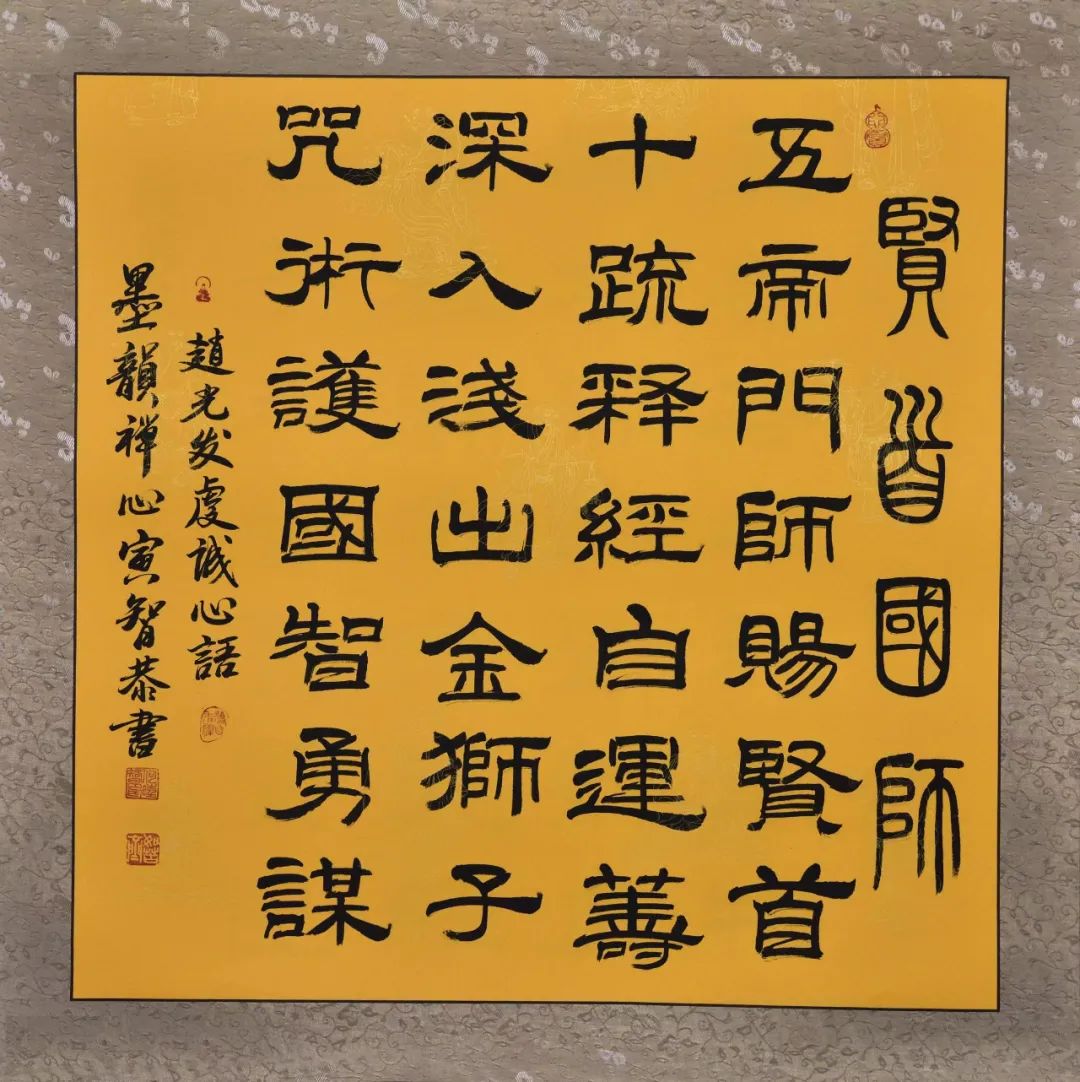 賢首國師
五帝門師賜賢首
十疏释經自運籌
深入淺出金獅子
咒術護國智勇謀
趙光发虔誠心語
墨韻禪心寅智恭書